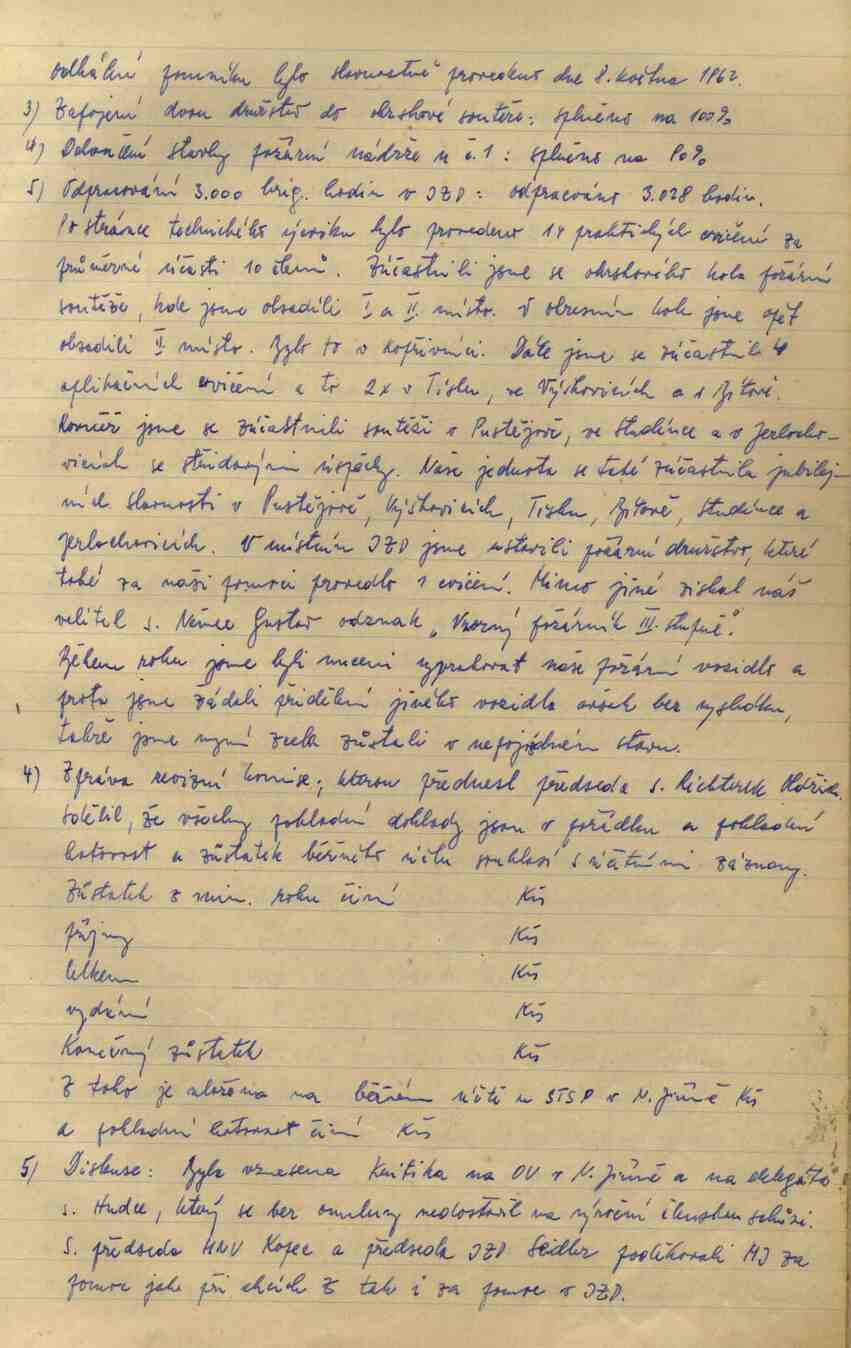 Odhalení pomníku bylo slavnostně provedeno dne 8. května 1962.
3) Zapojení dvou družstev do okrskové soutěže: splněno na 100%
4) Dokončení stavby požární nádrže u č.1: splněno na 90%
5) Odpracování 3.000 brig. hodin v JZD: odpracováno 3.028 hodin.
Po stránce technického výcviku bylo provedeno 14 praktických cvičení za
průměrné účasti 10 členů. Zúčastnili jsme se okrskového kola požární
soutěže, kde jsme obsadili I a II. místo. V okresním kole jsme opět
obsadili II místo. Bylo to v Kopřivnici. Dále jsme se zúčastnili 4
aplikačních cvičení a to 2x v Tísku, ve Výškovicích a v Bítově.
Rovněž jsme se zúčastnili soutěží v Pustějově, ve Studénce a v Jerlocho-
vicích se střídavými úspěchy. Naše jednota se také zúčastnila jubilej-
ních slavností v Pustějově, Výškovicích, Tísku, Bítově, Studénce a
Jerlochovicích. V místním JZD jsme ustavili požární družstvo, které
také za naší pomoci provedlo 1 cvičení. Mimo jiné získal náš
velitel s. Němec Gustav odznak „Vzorný požárník III. stupně".
Během roku jsme byli nuceni vyprakovat naše požární vozidlo a
proto jsme žádali přidělení jiného vozidla avšak bez výsledku,
takže jsme nyní zcela zůstali v nepojízdném stavu.
4) Zpráva revizní komise:, kterou přednesl předseda s. Richterek Oldřich.
sdělil, že všechny pokladní doklady jsou v pořádku a pokladní
hotovost a zůstatek běžného účtu souhlasí s účetními záznamy.
Zůstatek z min. roku činí Kčs
příjmy Kčs
Celkem Kčs
vydání Kčs
Konečný zůstatek Kčs
Z toho je uloženo na běžném účtě u STSP v N. Jičíně Kčs
a pokladní hotovost činí Kčs
5) Diskuse: Byla vznesena kritika na OV v N. Jičíně a na delegáta
s. Hudce, který se bez omluvy nedostavil na výroční členskou schůzi.
S. předseda MNV Kopec a předseda JZD Seidler poděkovali MJ za
pomoc jak při akcích Z tak i za pomoc v JZD.